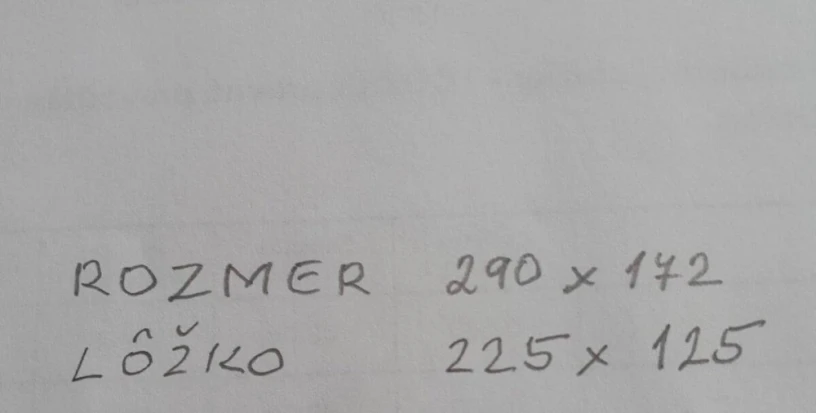 ROZMER 290 x 172
LÔŽKO 225 x 125